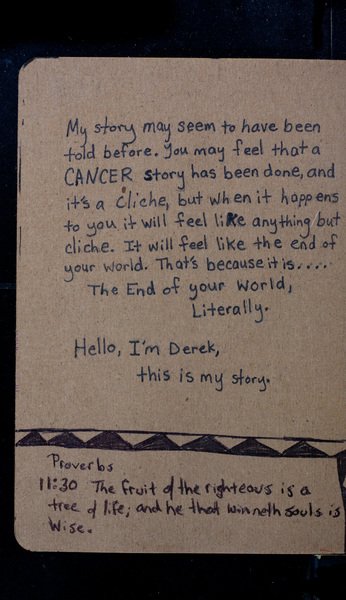 My story may seem to have been
told before. You may feel that a
CANCER story has been done, and
it's a cliche, but when it happens
to you it will feel like anything but
cliche. It will feel like the end of
your world. That's because it is....
The End of your World,
Literally.
Hello, I'm Derek,
this is my story.
Proverbs
11:30 The fruit of the righteous is a
tree of life; and he that winneth souls is
Wise.